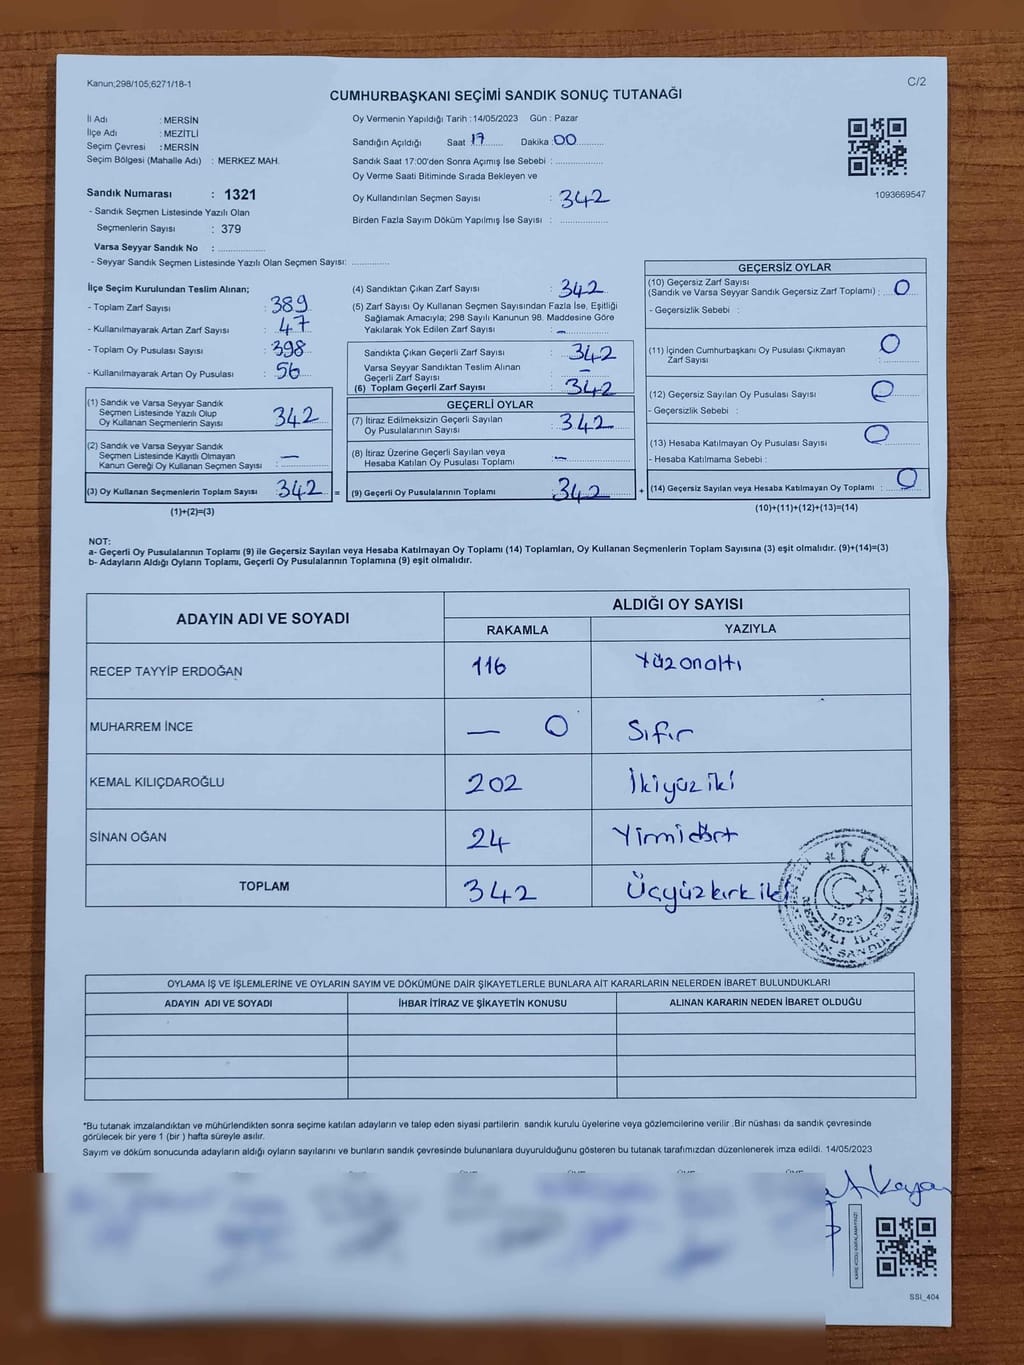 Kanun;298/105;6271/18-1
C/2
CUMHURBAŞKANI SEÇİMİ SANDIK SONUÇ TUTANAĞI
İl Adı : MERSİN
İlçe Adı : MEZİTLİ
Seçim Çevresi : MERSİN
Seçim Bölgesi (Mahalle Adı) : MERKEZ MAH.
Sandık Numarası : 1321
- Sandık Seçmen Listesinde Yazılı Olan
Seçmenlerin Sayısı : 379
Varsa Seyyar Sandık No :
- Seyyar Sandık Seçmen Listesinde Yazılı Olan Seçmen Sayısı:
Oy Vermenin Yapıldığı Tarih : 14/05/2023 Gün : Pazar
Sandığın Açıldığı Saat 17 Dakika : 00
Sandık Saat 17:00'den Sonra Açımış İse Sebebi :
Oy Verme Saati Bitiminde Sırada Bekleyen ve
Oy Kullandırılan Seçmen Sayısı : 342
Birden Fazla Sayım Döküm Yapılmış İse Sayısı :
1093669547
İlçe Seçim Kurulundan Teslim Alınan;
- Toplam Zarf Sayısı : 389
- Kullanılmayarak Artan Zarf Sayısı : 47
- Toplam Oy Pusulası Sayısı : 398
- Kullanılmayarak Artan Oy Pusulası : 56
(1) Sandık ve Varsa Seyyar Sandık
Seçmen Listesinde Yazılı Olup
Oy Kullanan Seçmenlerin Sayısı : 342
(2) Sandık ve Varsa Seyyar Sandık
Seçmen Listesinde Kayıtlı Olmayan
Kanun Gereği Oy Kullanan Seçmen Sayısı : —
(3) Oy Kullanan Seçmenlerin Toplam Sayısı : 342
(1)+(2)=(3)
=
(4) Sandıktan Çıkan Zarf Sayısı : 342
(5) Zarf Sayısı Oy Kullanan Seçmen Sayısından Fazla İse, Eşitliği
Sağlamak Amacıyla; 298 Sayılı Kanunun 98. Maddesine Göre
Yakılarak Yok Edilen Zarf Sayısı : –
Sandıkta Çıkan Geçerli Zarf Sayısı : 342
Varsa Seyyar Sandıktan Teslim Alınan
Geçerli Zarf Sayısı : –
(6) Toplam Geçerli Zarf Sayısı : 342
GEÇERLİ OYLAR
(7) İtiraz Edilmeksizin Geçerli Sayılan
Oy Pusulalarının Sayısı : 342
(8) İtiraz Üzerine Geçerli Sayılan veya
Hesaba Katılan Oy Pusulası Toplamı : –
(9) Geçerli Oy Pusulalarının Toplamı : 342
+
GEÇERSİZ OYLAR
(10) Geçersiz Zarf Sayısı
(Sandık ve Varsa Seyyar Sandık Geçersiz Zarf Toplamı) : 0
- Geçersizlik Sebebi :
(11) İçinden Cumhurbaşkanı Oy Pusulası Çıkmayan
Zarf Sayısı : 0
(12) Geçersiz Sayılan Oy Pusulası Sayısı : 0
- Geçersizlik Sebebi :
(13) Hesaba Katılmayan Oy Pusulası Sayısı : 0
- Hesaba Katılmama Sebebi :
(14) Geçersiz Sayılan veya Hesaba Katılmayan Oy Toplamı : 0
(10)+(11)+(12)+(13)=(14)
NOT:
a- Geçerli Oy Pusulalarının Toplamı (9) ile Geçersiz Sayılan veya Hesaba Katılmayan Oy Toplamı (14) Toplamları, Oy Kullanan Seçmenlerin Toplam Sayısına (3) eşit olmalıdır. (9)+(14)=(3)
b- Adayların Aldığı Oyların Toplamı, Geçerli Oy Pusulalarının Toplamına (9) eşit olmalıdır.
ADAYIN ADI VE SOYADI ALDIĞI OY SAYISI
RAKAMLA YAZIYLA
RECEP TAYYİP ERDOĞAN 116 Yüzonaltı
MUHARREM İNCE — 0 Sıfır
KEMAL KILIÇDAROĞLU 202 İkiyüziki
SİNAN OĞAN 24 Yirmidört
TOPLAM 342 Üçyüzkırkiki
T.C.
1923
MEZİTLİ İLÇESİ
OYLAMA İŞ VE İŞLEMLERİNE VE OYLARIN SAYIM VE DÖKÜMÜNE DAİR ŞİKAYETLERLE BUNLARA AİT KARARLARIN NELERDEN İBARET BULUNDUKLARI
ADAYIN ADI VE SOYADI İHBAR İTİRAZ VE ŞİKAYETİN KONUSU ALINAN KARARIN NEDEN İBARET OLDUĞU
*Bu tutanak imzalandıktan ve mühürlendikten sonra seçime katılan adayların ve talep eden siyasi partilerin sandık kurulu üyelerine veya gözlemcilerine verilir .Bir nüshası da sandık çevresinde
görülecek bir yere 1 (bir ) hafta süreyle asılır.
Sayım ve döküm sonucunda adayların aldığı oyların sayılarını ve bunların sandık çevresinde bulunanlara duyurulduğunu gösteren bu tutanak tarafımızdan düzenlenerek imza edildi. 14/05/2023
SSI_404